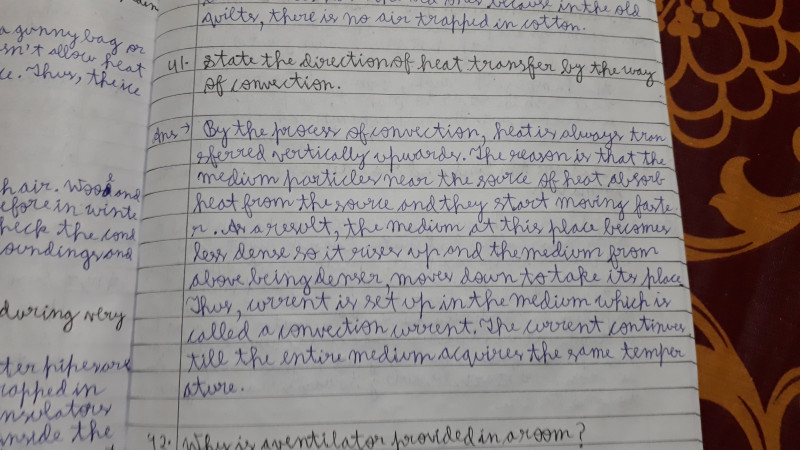 quilts, there is no air trapped in cotton.
a gunny bag or
sn't allow heat
ce. Thus, the ice
41. State the direction of heat transfer by the way
of convection.
Ans → By the process of convection, heat is always tran
sferred vertically upwards. The reason is that the
medium particles near the source of heat absorb
heat from the source and they start moving faste
r. As a result, the medium at this place becomes
less dense so it rises up and the medium from
above being denser, moves down to take its place.
Thus, current is set up in the medium which is
called a convection current. The current continues
till the entire medium acquires the same temper
ature.
h air. Wool and
efore in winte
heck the cond
oundings and
during very
ter pipes are
rapped in
insulators
inside the
42. Why is a ventilator provided in a room?